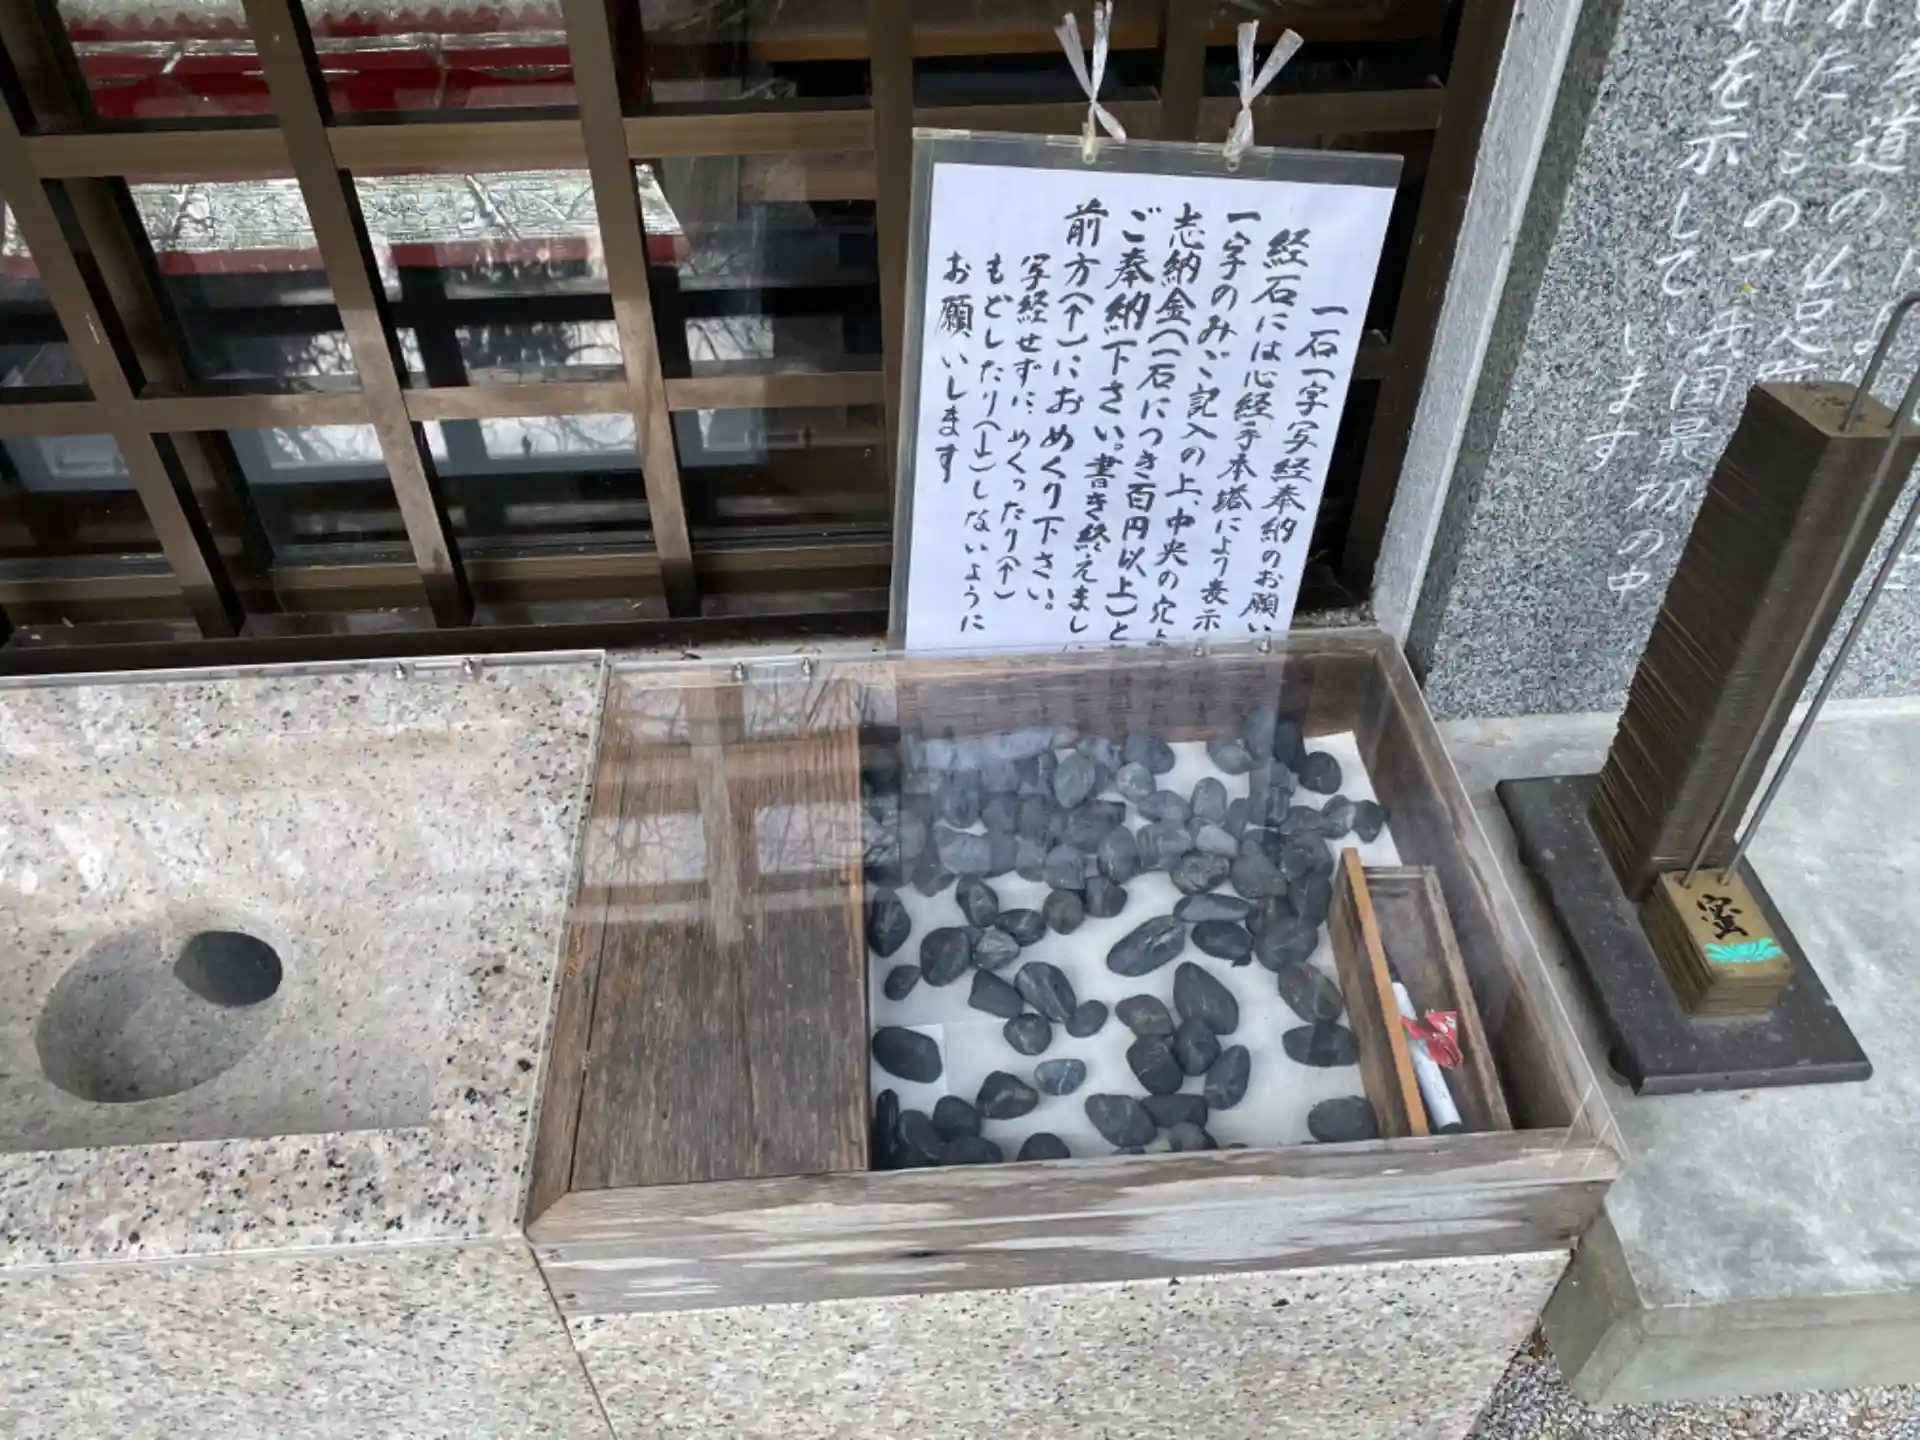 一石一字写経奉納のお願い
経石には心経手本塔により表示
一字のみご記入の上、中央の穴
志納金(一石につき百円以上)と
ご奉納下さい。書き終えまし
前方(↑)におめくり下さい。
写経せずに、めくったり(↑)
もどしたり(↓)しないように
お願いします
道の仏足
たもの
相を示しています
お国最初の中